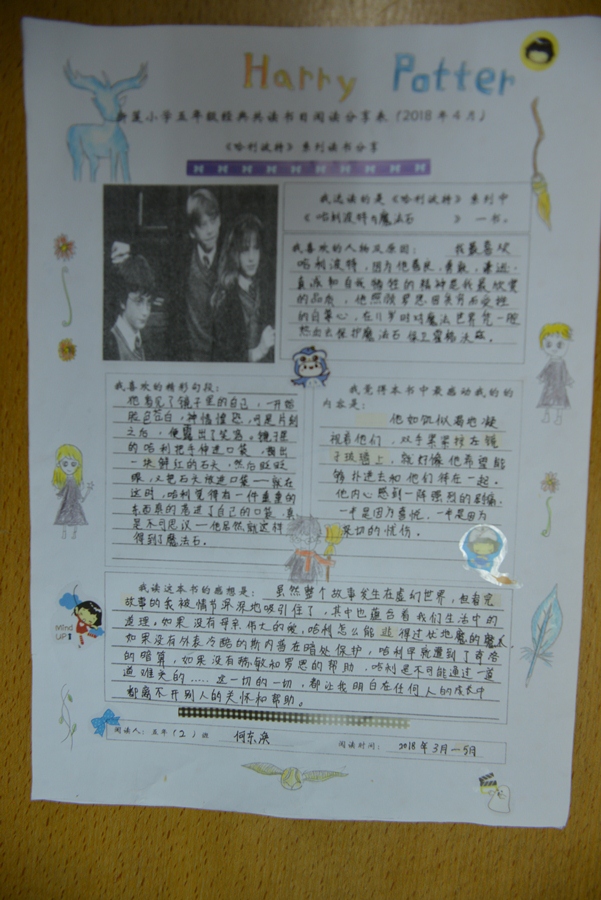 Harry Potter
小学五年级经典共读书目阅读分享表（2018年4月）
《哈利波特》系列读书分享
我选读的是《哈利波特》系列中
《哈利波特与魔法石》一书。
我喜欢的人物及原因： 我最喜欢
哈利波特，因为他善良、勇敢、谦逊、
真诚和自我牺牲的精神是我最欣赏
的品质，他照顾罗恩因贫穷而受挫
的自尊心，在11岁时对魔法世界
去保护魔法石
我喜欢的精彩句段：
他看见了镜子里的自己，一开始
脸色苍白，神情惶恐，可是片刻
之后，便露出了笑容。镜子里
的哈利把手伸进口袋，掏出
一块鲜红的石头，然后眨眨
眼，又把石头放进口袋——就在
这时，哈利觉得有一件重重的
东西真的落进了自己的口袋。真
是不可思议——他居然就这样
得到了魔法石。
我觉得本书中最感动我的的
内容是：
他如饥似渴地凝
视着他们，双手紧紧按在镜
子玻璃上，就好像他希望能
够扑进去和他们待在一起。
他内心感到一阵强烈的剧痛，
一半是因为喜悦，一半是因为
深切的忧伤。
我读这本书的感想是： 虽然整个故事发生在虚幻世界，但看完
故事的我被情节深深地吸引住了，其中也蕴含着我们生活中的
道理，如果没有母亲伟大的爱，哈利怎么能逃得过伏地魔的魔爪，
如果没有外表冷酷的斯内普在暗处保护，哈利早就遭到了奇洛
的暗算，如果没有赫敏和罗恩的帮助，哈利是不可能通过一道
道难关的……这一切的一切，都让我明白在任何人的成长中
都离不开别人的关怀和帮助。
阅读人：五年（2）班 何东
阅读时间： 2018年3月—5月